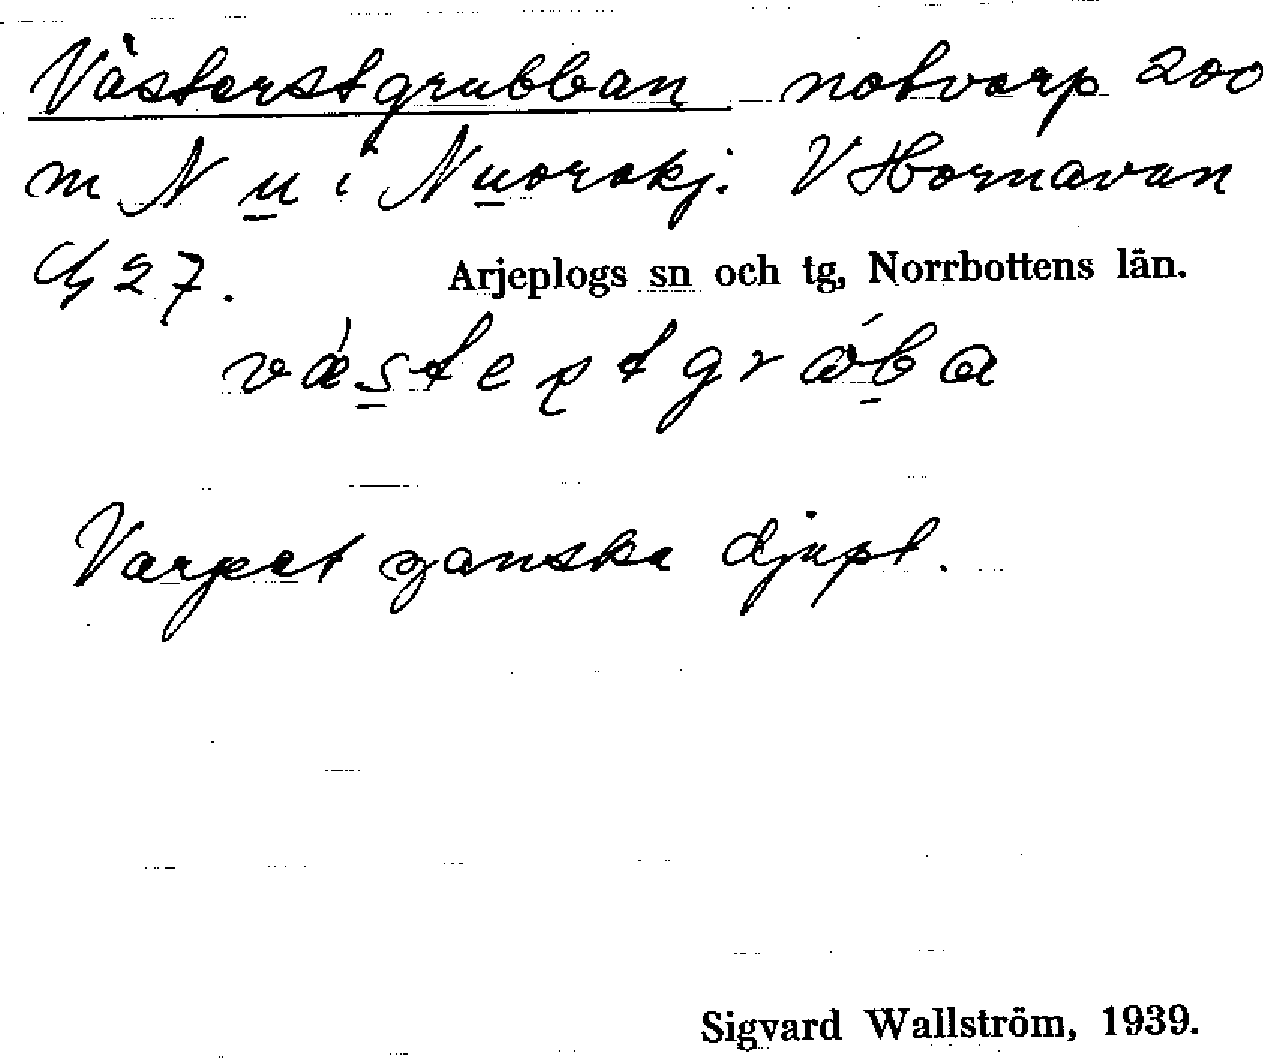 Västerstgrubban notvarp 200
m N u i Nuorakj. V Hornavan
27.
Arjeplogs sn och tg, Norrbottens län.
Varpet ganska djupt.
Sigvard Wallström, 1939.